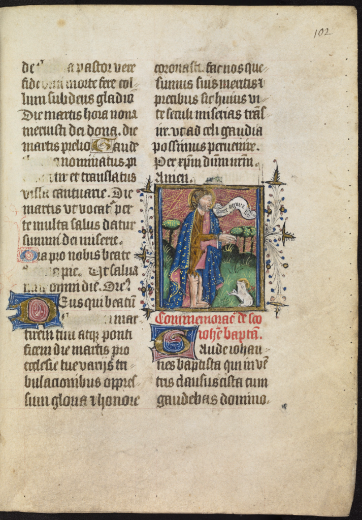 102
de pastor vere
fide morte fere col
lum subdens gladio
Die martis hora nona
meruisti dei dona. die
martis prelio Gaude
nominatus pri
tur et translatus
villa cantuarie. Die
martis ut vocat per
te multa salus datur
summi dei miserere.
Ora pro nobis beate
Ut salua
omni die. Or
Deus qui beatum
mar
tirem tuum atque ponti
ficem die martis pro
ecclesie tue varijs tri
bulacionibus oppres
sum gloria et honore
coronasti. fac nos que
sumus suis meritis et
precibus sic huius vi
te seculi miserias trans
ire. ut ad celi gaudia
possimus peruenire.
Per xpm dum nrm.
Amen.
Ecce agnus dei
Commemoracio de sco
iohe bapta.
Gaude iohan
nes baptista qui in ve
tris clausus cista cum
gaudebas domino.